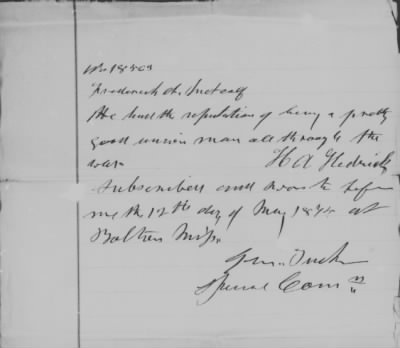 No 18509
Frederick Metcalf
He had the reputation of being a pretty
good union man all through the
war H A Hedrick
Subscribed and sworn to before
me the 12th day of May 1874 at
Bolton Miss.
Special Com